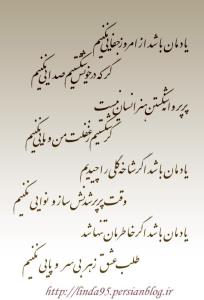 یادمان باشد از امروز جفایی نکنیم
گر که در خویش شکستیم صدایی نکنیم
پر پروانه شکستن هنر انسان نیست
گر شکستیم ز غفلت من و مایی نکنیم
یادمان باشد اگر شاخه گلی را چیدیم
وقت پرپر شدنش ساز و نوایی نکنیم
یادمان باشد اگر خاطرمان تنها شد
طلب عشق ز هر بی سر و پایی نکنیم
http://linda95.persianblog.ir